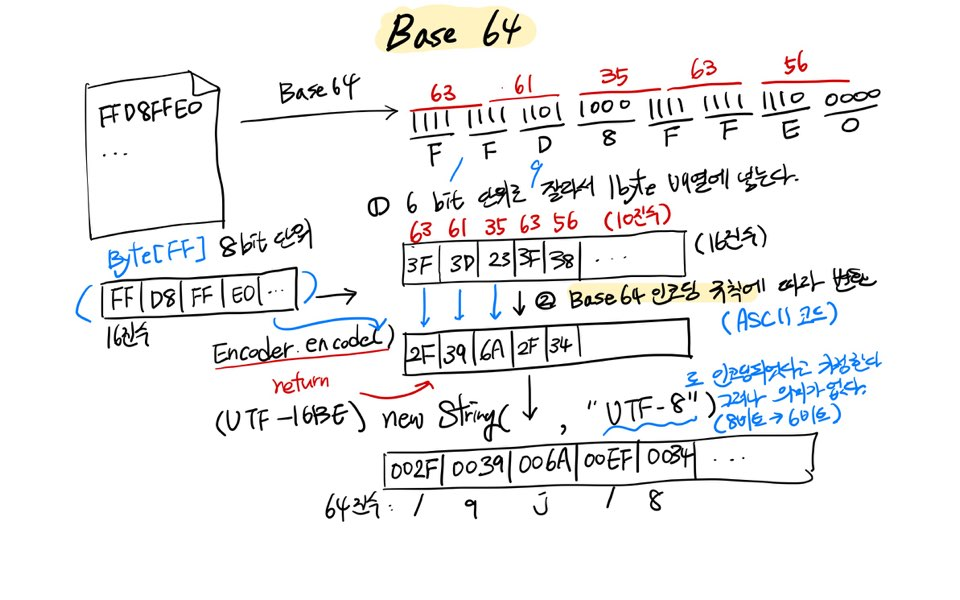 Base 64
FFD8FFE0
...
Base 64
63 61 35 63 56
1111 1111 1101 1000 1111 1111 1110 0000
F F D 8 F F E 0
/ 9
① 6 bit 단위로 잘라서 1byte 배열에 넣는다.
Byte[FF] 8bit 단위
63 61 35 63 56 (10진수)
3F 3D 23 3F 38 ... (16진수)
( FF D8 FF E0 ... )
16진수
② Base64 인코딩 규칙에 따라 변환
(ASCII 코드)
Encoder.encode( )
2F 39 6A 2F 34
return
(UTF-16BE) new String( , "UTF-8")
로 인코딩되었다고 가정한다
그러나 의미가 없다.
(8비트→6비트)
002F 0039 006A 00EF 0034 ...
64진수: / 9 j / 8